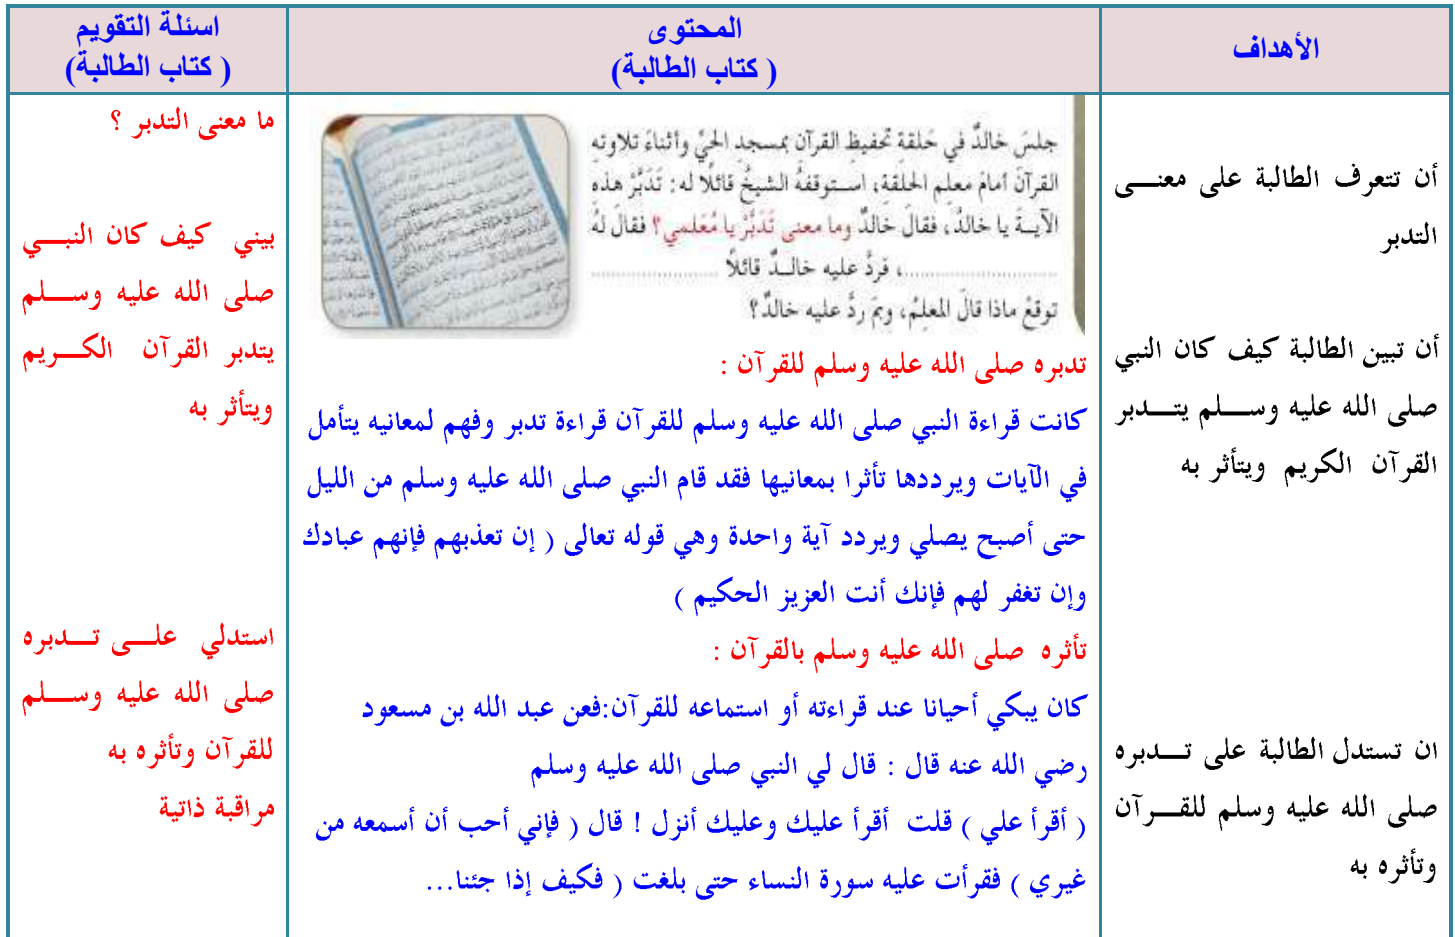 الأهداف
المحتوى
( كتاب الطالبة)
اسئلة التقويم
( كتاب الطالبة)
أن تتعرف الطالبة على معنى
التدبر
أن تبين الطالبة كيف كان النبي
صلى الله عليه وسلم يتدبر
القرآن الكريم ويتأثر به
ان تستدل الطالبة على تدبره
صلى الله عليه وسلم للقرآن
وتأثره به
جلسَ خالدٌ في حَلقةِ تحفيظِ القرآنِ بمسجدِ الحيِّ وأثناءَ تلاوتهِ
القرآنَ أمامَ معلمِ الحلقةِ، استوقفهُ الشيخُ قائلًا له: تَدَبَّرْ هذه
الآيةَ يا خالدُ، فقالَ خالدٌ وما معنى تَدَبَّرْ يا مُعَلمي؟ فقالَ لهُ
........................، فردَّ عليه خالدٌ قائلًا ........................
توقعْ ماذا قالَ المعلمُ، وبمَ ردَّ عليه خالدٌ؟
تدبره صلى الله عليه وسلم للقرآن :
كانت قراءة النبي صلى الله عليه وسلم للقرآن قراءة تدبر وفهم لمعانيه يتأمل
في الآيات ويرددها تأثرا بمعانيها فقد قام النبي صلى الله عليه وسلم من الليل
حتى أصبح يصلي ويردد آية واحدة وهي قوله تعالى ( إن تعذبهم فإنهم عبادك
وإن تغفر لهم فإنك أنت العزيز الحكيم )
تأثره صلى الله عليه وسلم بالقرآن :
كان يبكي أحيانا عند قراءته أو استماعه للقرآن:فعن عبد الله بن مسعود
رضي الله عنه قال : قال لي النبي صلى الله عليه وسلم
( أقرأ علي ) قلت أقرأ عليك وعليك أنزل ! قال ( فإني أحب أن أسمعه من
غيري ) فقرأت عليه سورة النساء حتى بلغت ( فكيف إذا جئنا...
ما معنى التدبر ؟
بيني كيف كان النبي
صلى الله عليه وسلم
يتدبر القرآن الكريم
ويتأثر به
استدلي على تدبره
صلى الله عليه وسلم
للقرآن وتأثره به
مراقبة ذاتية